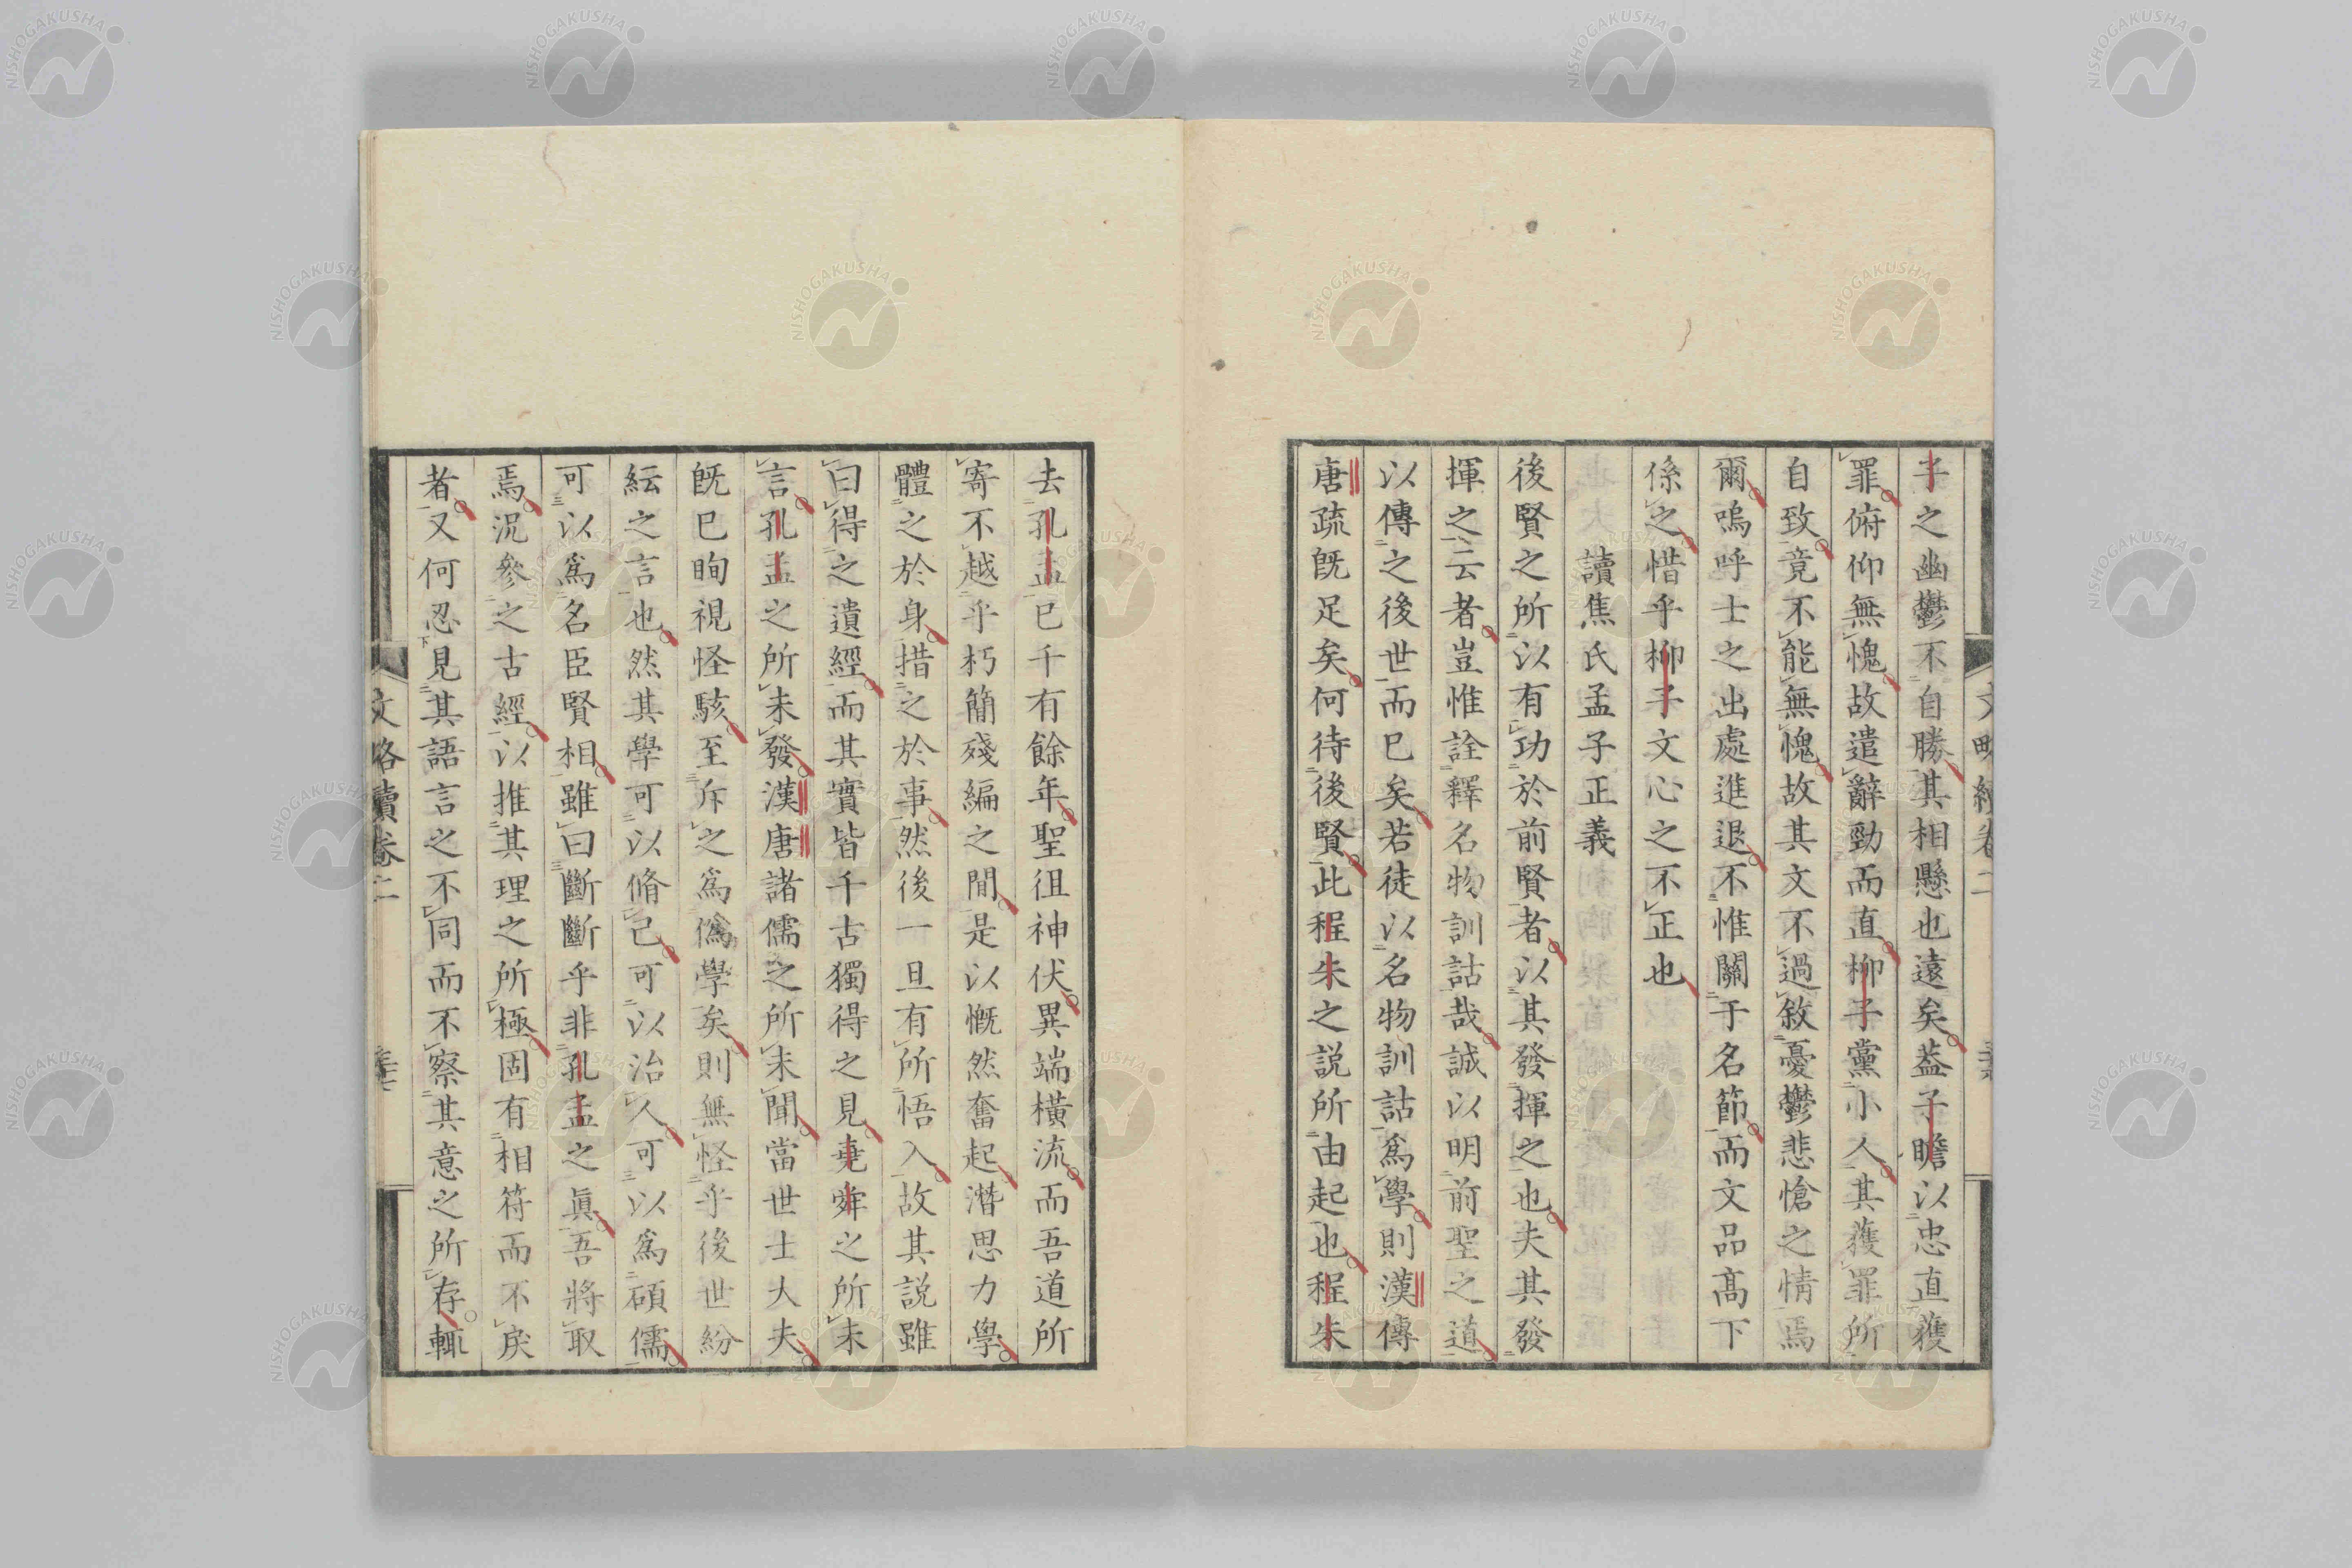 子之幽鬱不自勝其相懸也遠矣葢子瞻以忠直獲
罪俯仰無愧故遣辭勁而直柳子黨小人其獲罪所
自致竟不能無愧故其文不過敘憂鬱悲愴之情焉
爾嗚呼士之出處進退不惟關于名節而文品高下
係之惜乎柳子文心之不正也
讀焦氏孟子正義
後賢之所以有功於前賢者以其發揮之也夫其發
揮之云者豈惟詮釋名物訓詁哉誠以明前聖之道
以傳之後世而已矣若徒以名物訓詁爲學則漢傳
唐疏既足矣何待後賢此程朱之說所由起也程朱
去孔孟已千有餘年聖徂神伏異端橫流而吾道所
寄不越乎朽簡殘編之間是以慨然奮起潛思力學
體之於身措之於事然後一旦有所悟入故其說雖
曰得之遺經而其實皆千古獨得之見堯舜之所未
言孔孟之所未發漢唐諸儒之所未聞當世士大夫
既已眴視怪駭至斥之爲僞學矣則無怪乎後世紛
紜之言也然其學可以脩己可以治人可以爲碩儒
可以爲名臣賢相雖曰斷斷乎非孔孟之眞吾將取
焉況參之古經以推其理之所極固有相符而不戾
者又何忍見其語言之不同而不察其意之所存輒
NISHOGAKUSHA